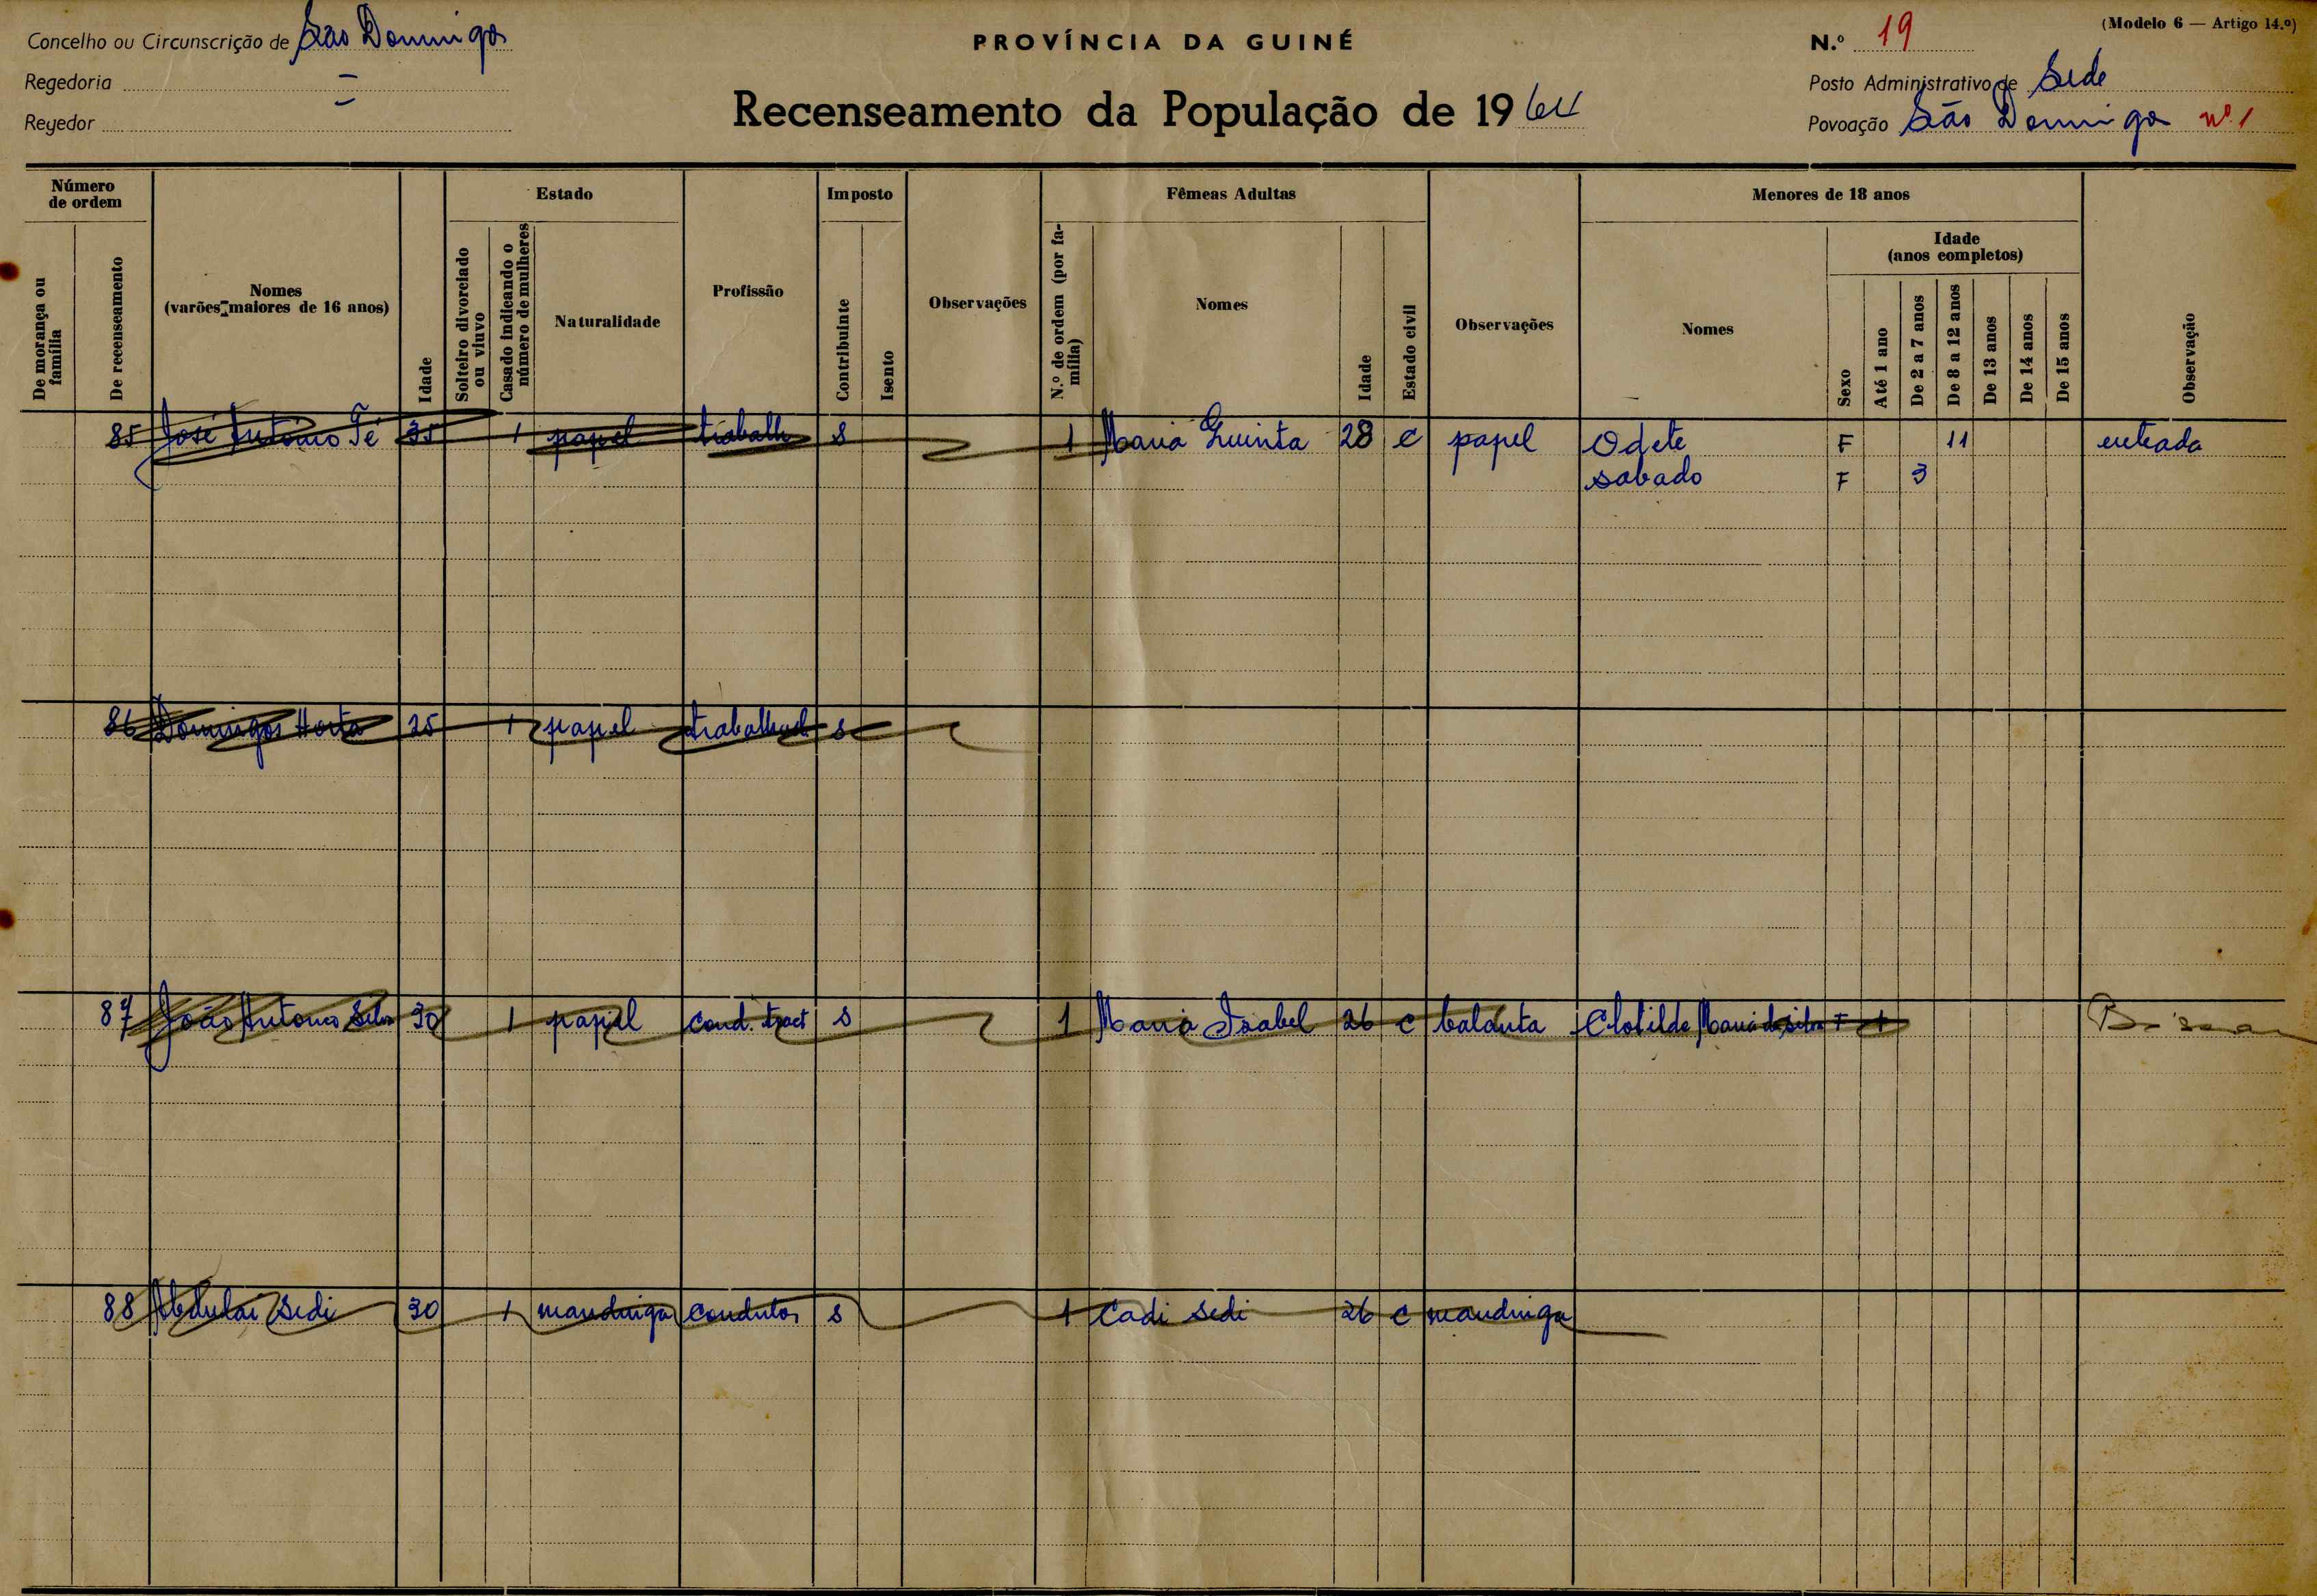 Concelho ou Circunscrição de São Domingos
Regedoria
Regedor
PROVÍNCIA DA GUINÉ
Recenseamento da População de 1964
(Modelo 6 — Artigo 14.º)
N.º 19
Posto Administrativo de Sede
Povoação São Domingos nº 1
Número de ordem
De morança ou família
De recenseamento
Nomes (varões maiores de 16 anos)
Idade
Estado
Solteiro divorciado ou viuvo
Casado indicando o número de mulheres
Naturalidade
Profissão
Imposto
Contribuinte
Isento
Observações
Fêmeas Adultas
N.º de ordem (por família)
Nomes
Idade
Estado civil
Observações
Menores de 18 anos
Nomes
Sexo
Idade (anos completos)
Até 1 ano
De 2 a 7 anos
De 8 a 12 anos
De 13 anos
De 14 anos
De 15 anos
Observação
85 José Antonio Té 35 1 papel trabalh s 1 Maria Quinta 28 c papel Odete F 11 entrada
sabado F 3
86 Domingos Horta 25 1 papel trabalhad s
87 João Antonio Silva 30 1 papel cond. tract s 1 Maria Isabel 26 c balanta Clotilde Maria da silva F 1
88 Abdulai Sedi 30 1 mandinga condutor s 1 Cadi Sedi 26 c mandinga